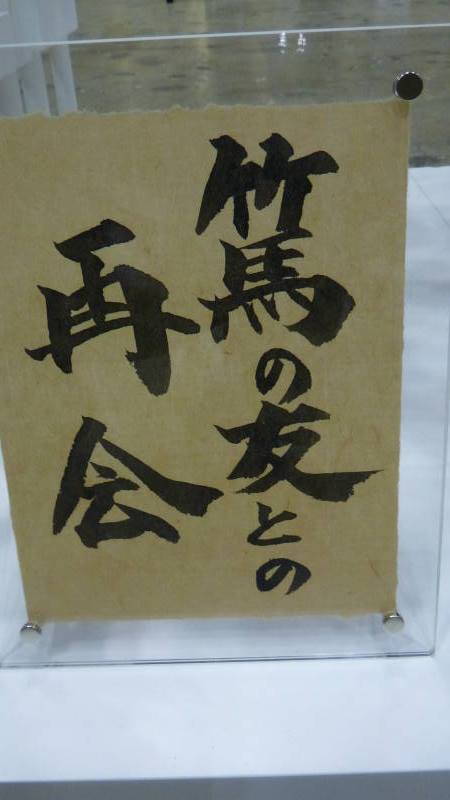 竹馬の友との
再会